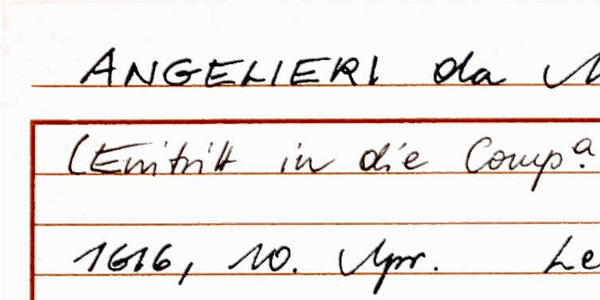 ANGELIERI da
(Eintritt in die Comp.a
1616, 10. Apr. Le